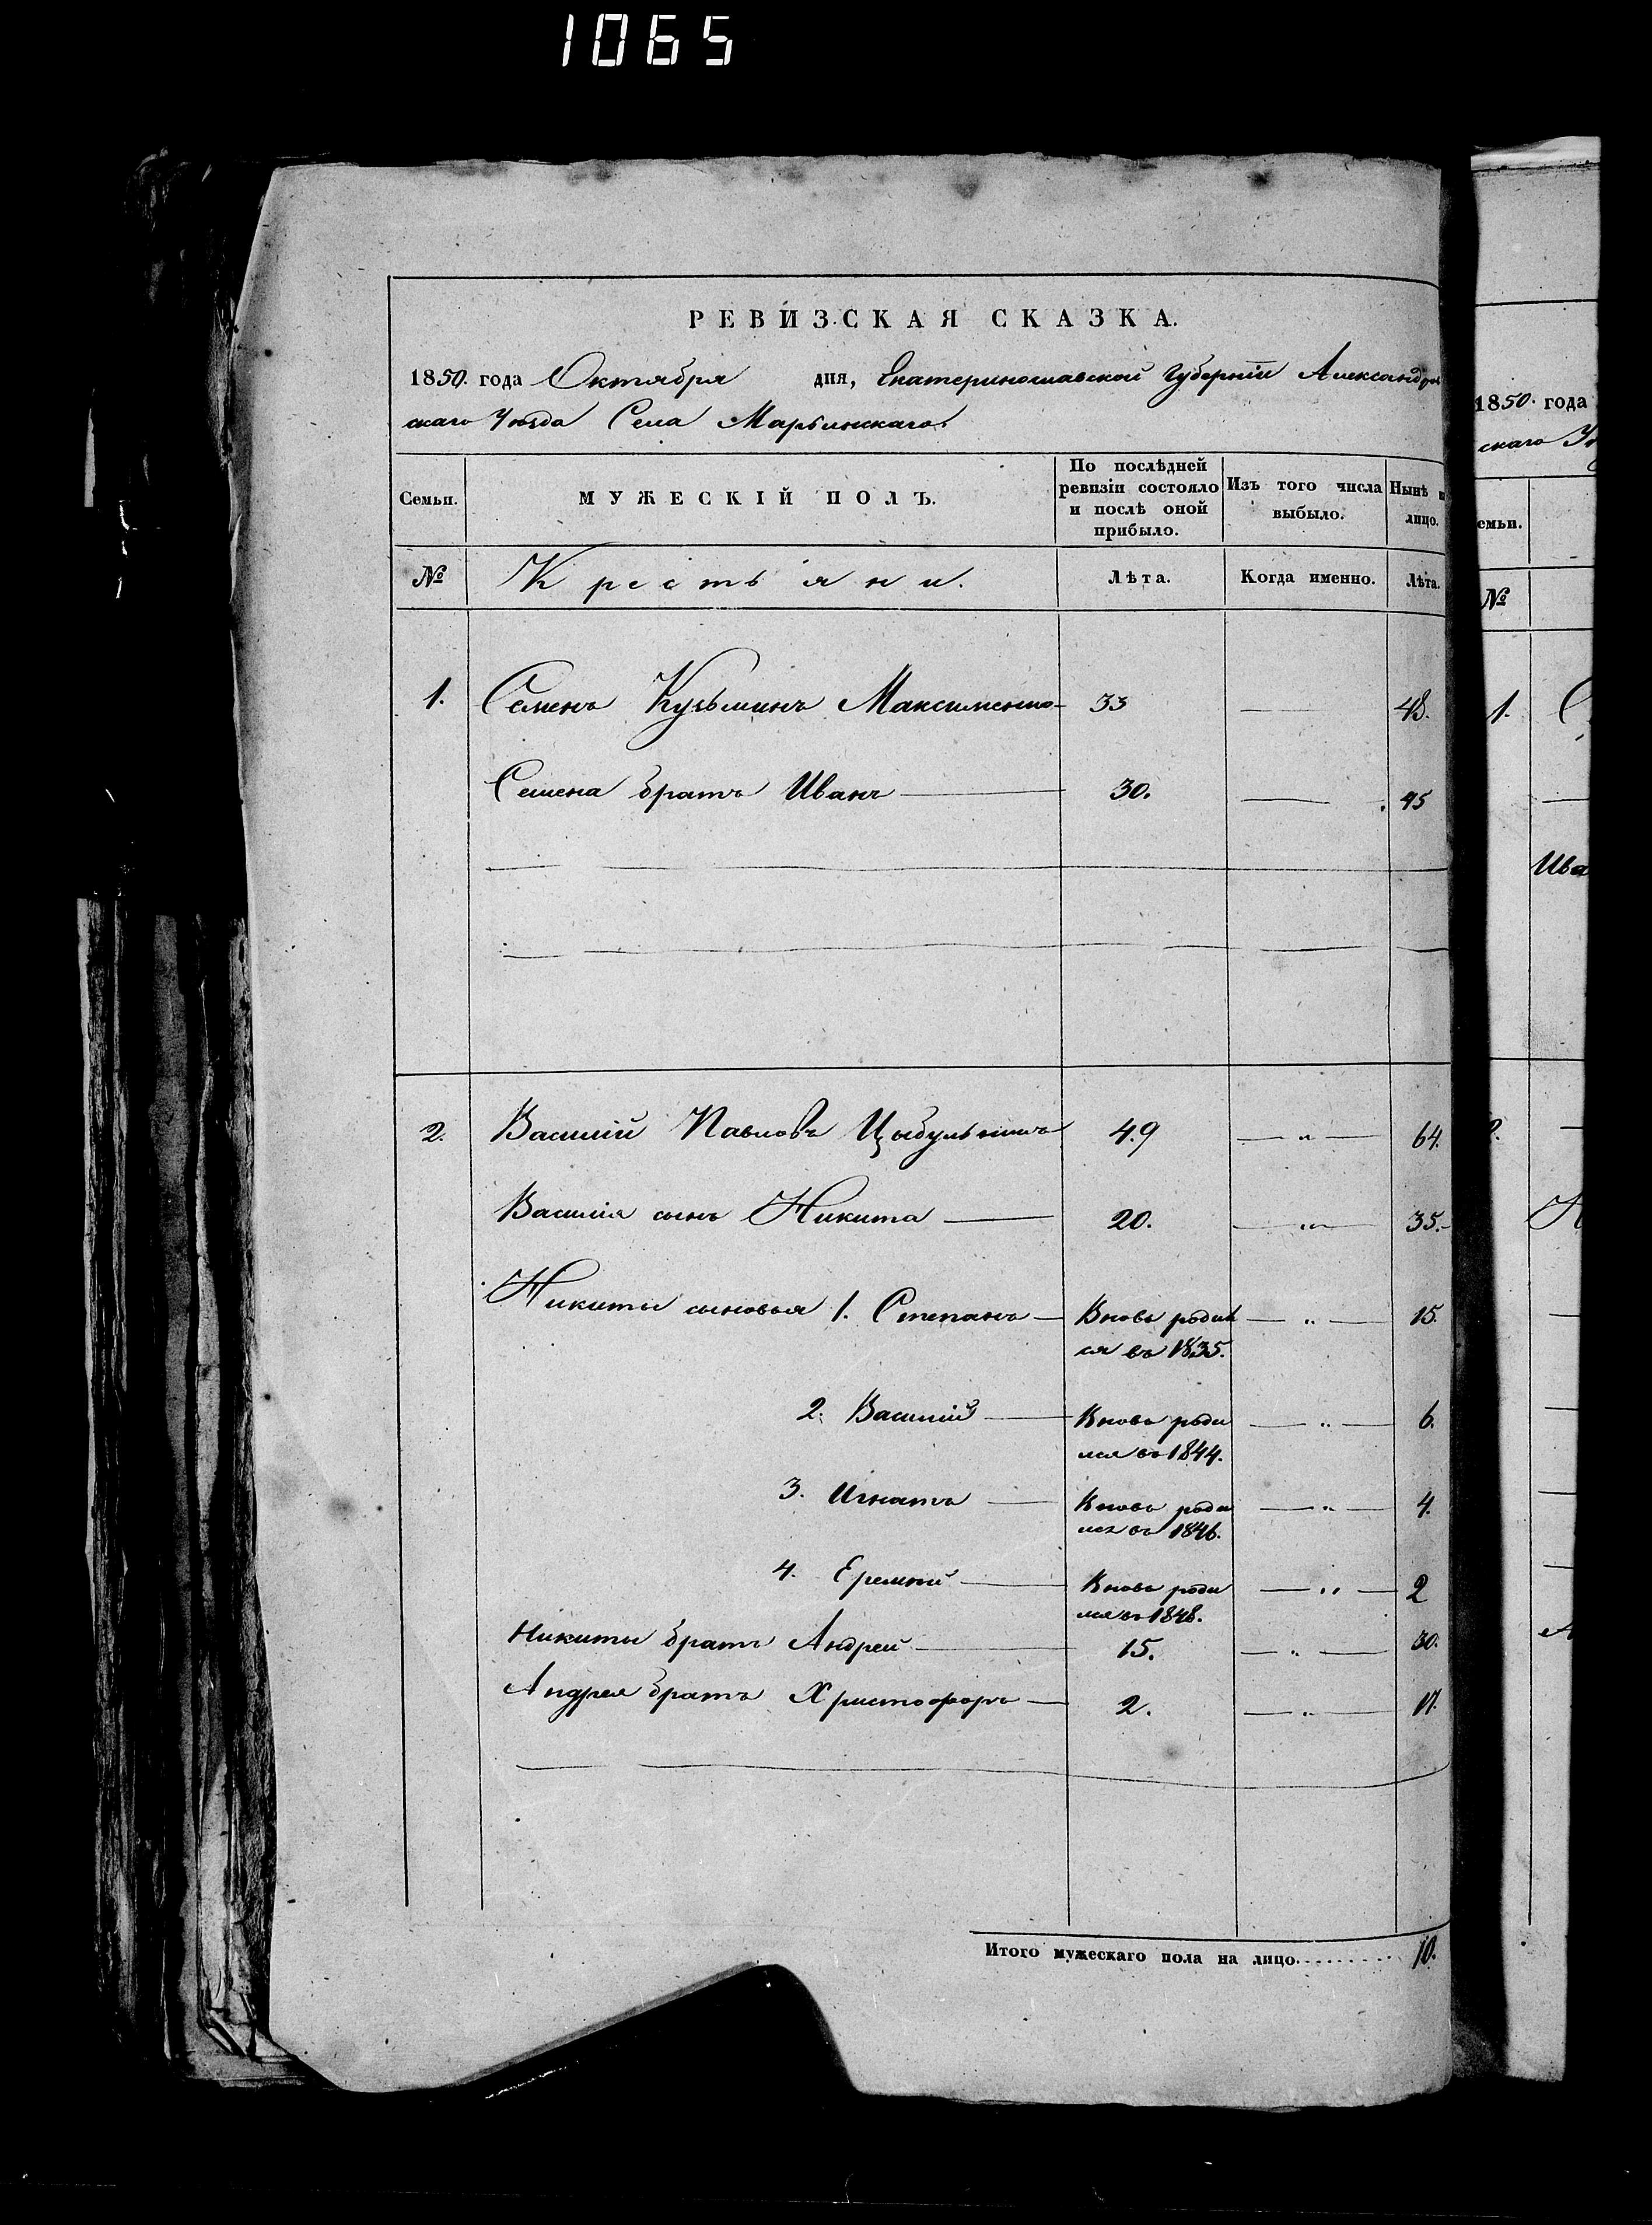 1065
РЕВИЗСКАЯ СКАЗКА.
1850. года Октября дня, Екатеринославской Губерніи Александров
скаго Уѣзда Села Марьинскаго.
Семьи.
МУЖЕСКІЙ ПОЛЪ.
По послѣдней
ревизіи состояло
и послѣ оной
прибыло.
Изъ того числа
выбыло.
Нынѣ н
лицо.
№
Крестьяни.
Лѣта.
Когда именно.
Лѣта.
1. Семенъ Кузьминъ Максименко 33 — 48.
Семена братъ Иванъ — 30. — 45
2. Василій Павловъ Цыбулькинъ 49 — „ — 64.
Василія сынъ Никита — 20. — „ — 35.
Никиты сыновья 1. Степанъ — Вновь родил — „ — 15.
ся въ 1835.
2. Василій — Вновь роди — „ — 6.
лся въ 1844.
3. Игнатъ — Вновь роди — „ — 4.
лся въ 1846.
4. Еремѣй — Вновь роди — „ — 2
лся въ 1848.
Никиты братъ Андрей — 15. — „ — 30.
Андрея братъ Христофоръ — 2. — „ — 17.
Итого мужескаго пола на лицо. . . . . . . . . . 10.
1850. года
скаго У
емьи.
№
1. С
Ива
2.
Н
А